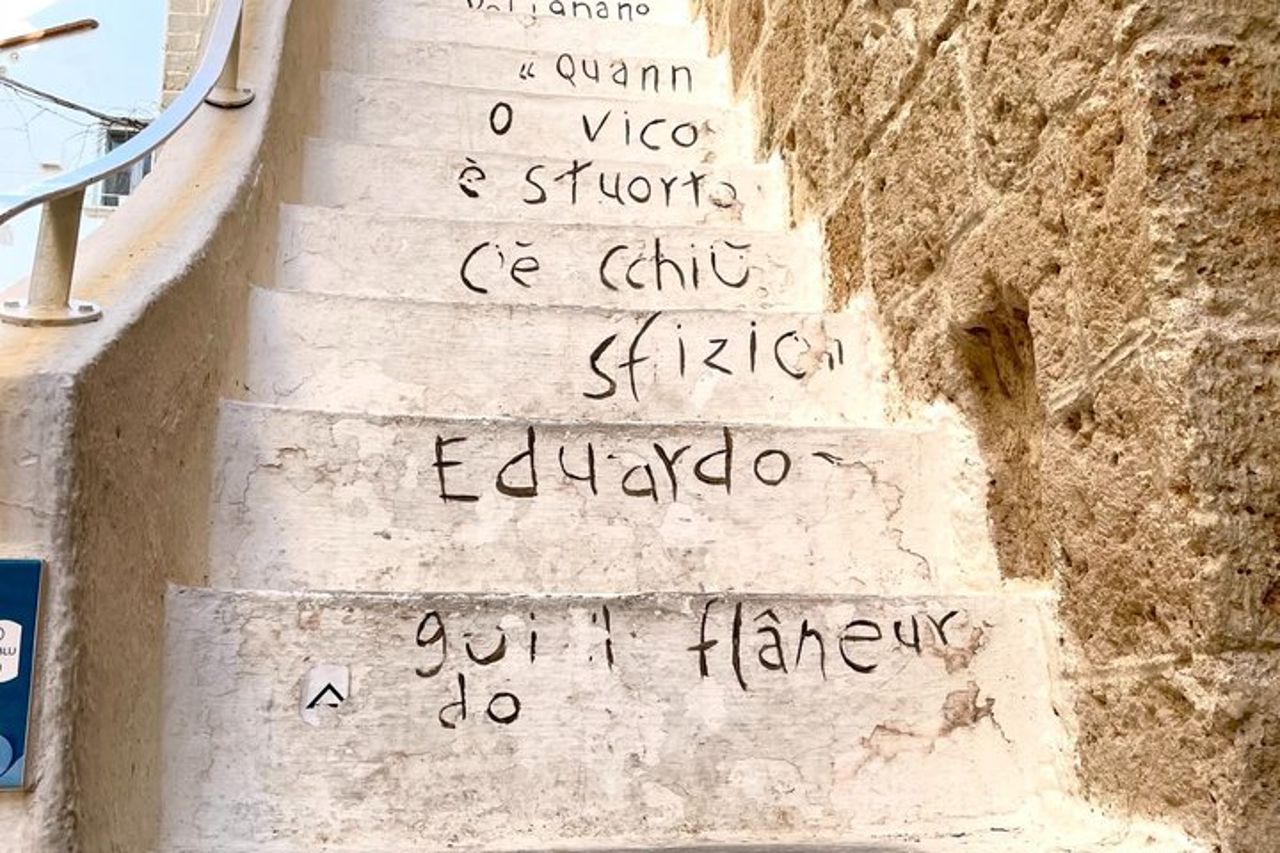 « Quann
o vico
è stuorto
c'è cchiù
sfizio»
Eduardo
gui il flâneur
do